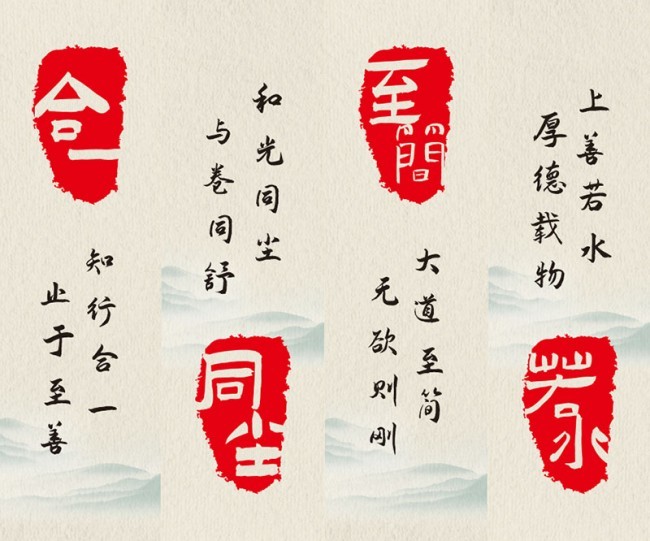 合一
知行合一
止于至善
和光同尘
与卷同舒
同尘
至簡
大道至简
无欲则刚
上善若水
厚德载物
若水